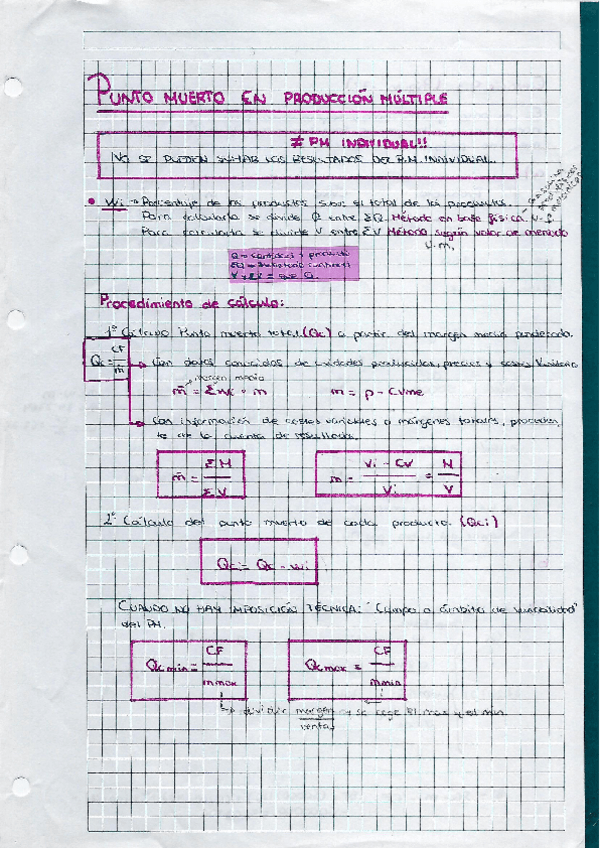 PUNTO MUERTO EN PRODUCCIÓN MÚLTIPLE
≠ PM INDIVIDUAL!!
NO SE PUEDEN SUMAR LOS RESULTADOS DEL P.M. INDIVIDUAL.
• Wi → Porcentaje de los productos sobre el total de los productos.
Para calcularla se divide Q entre ΣQ. Método en base física. U.F.
Para calcularla se divide V entre ΣV Método según valor de mercado
V.M.
Q = cantidad
V y ΣV = que Q.
Procedimiento de cálculo:
1º Cálculo Punto muerto total (Qc) a partir del margen medio ponderado.
Qc = CF / m̄
→ Con datos conocidos de unidades producidas, precios y costes
margen medio
m = p - CVme
→ Con información de costes variables o márgenes totales, proceden
te de la cuenta de resultados.
m̄ = ΣM / ΣV
m = Vi - CV / Vi = M / V
2º Cálculo del punto muerto de cada producto. (Qci)
Qci = Qc · wi
CUANDO NO HAY IMPOSICIÓN TÉCNICA: "Campo o ámbito de viabilidad"
del PM.
Qc min = CF / m max
Qc max = CF / m min
→ dividir margen / ventas → se coge el max y el min